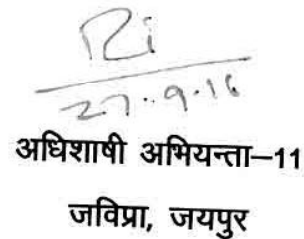 27.9.16
अधिशाषी अभियन्ता–11
जविप्रा, जयपुर